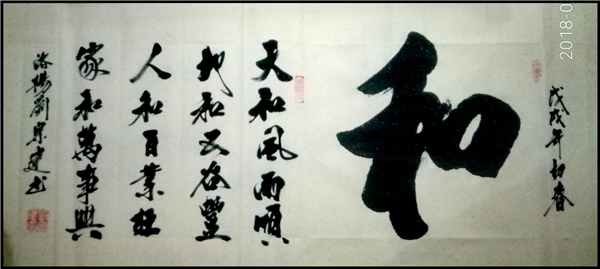 戊戌年初春
和
天和風雨順
地和五谷豐
人和百業旺
家和萬事興
洛陽劉宗建书
2018-0